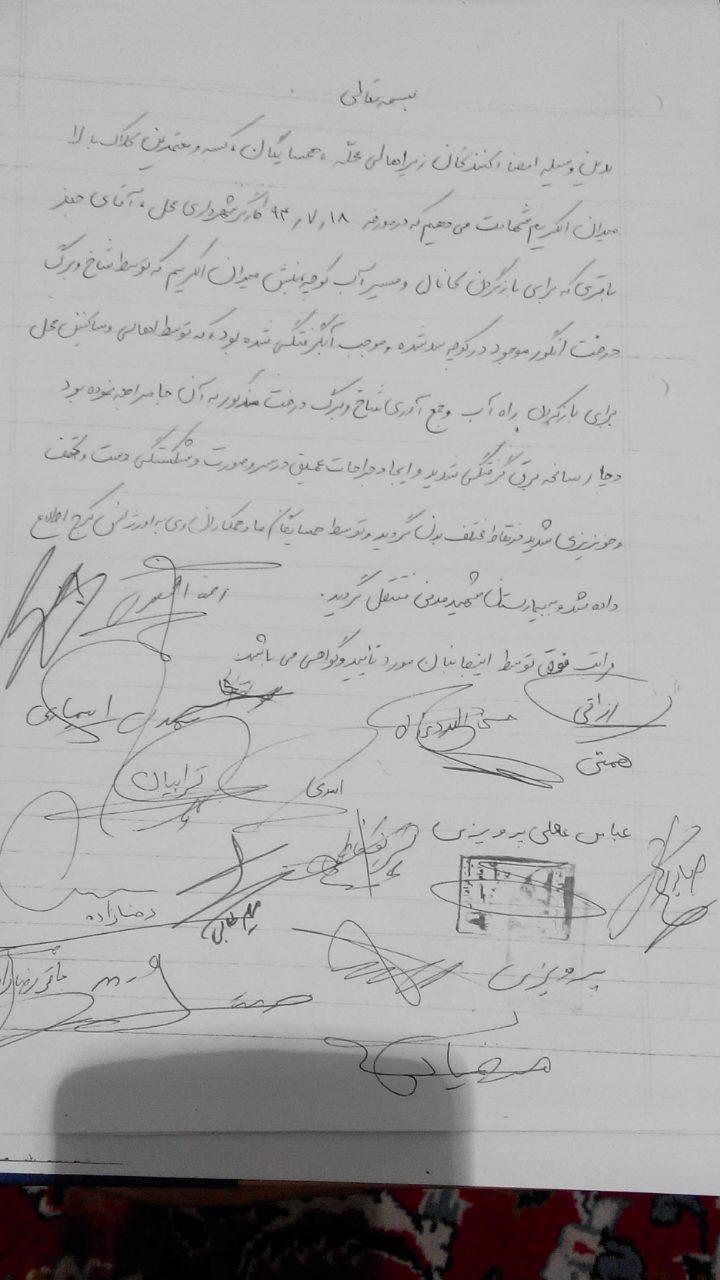 بسمه تعالی
بدین وسیله امضاء کنندگان زیر اهالی محلّه ، همسایگان ، کسبه و معتمدین کلاک بالا
میدان الکریم شهادت می دهیم که در مورخه ۹۳٫۷٫۱۸ کارگر شهرداری محل ، آقای جعفر
باقری که برای باز کردن کانال و مسیر آب کوچه بنش میدان الکریم که توسط شاخ و برگ
درخت انگور موجود در کوچه سد شده و موجب آبگرفتگی شده بود که توسط اهالی و ساکنین محل
برای باز کردن راه آب و جمع آوری شاخ و برگ درخت مذکور به آن جا مراجعه نموده بود
دچار سانحه برق گرفتگی شدید و ایجاد جراحات عمیق در سر و صورت و شکستگی دست و کتف
و خونریزی شدید در نقاط مختلف بدن گردید و توسط همسایگان ما و همکاران وی به اورژانس کرج اطلاع
داده شد و به بیمارستان شهید مدنی منتقل گردید .
مراتب فوق توسط اینجانبان مورد تأیید و گواهی می باشد .
همتی
ترابیان
اسدی
عباس علی پرویزی
رضازاده
پرویزی